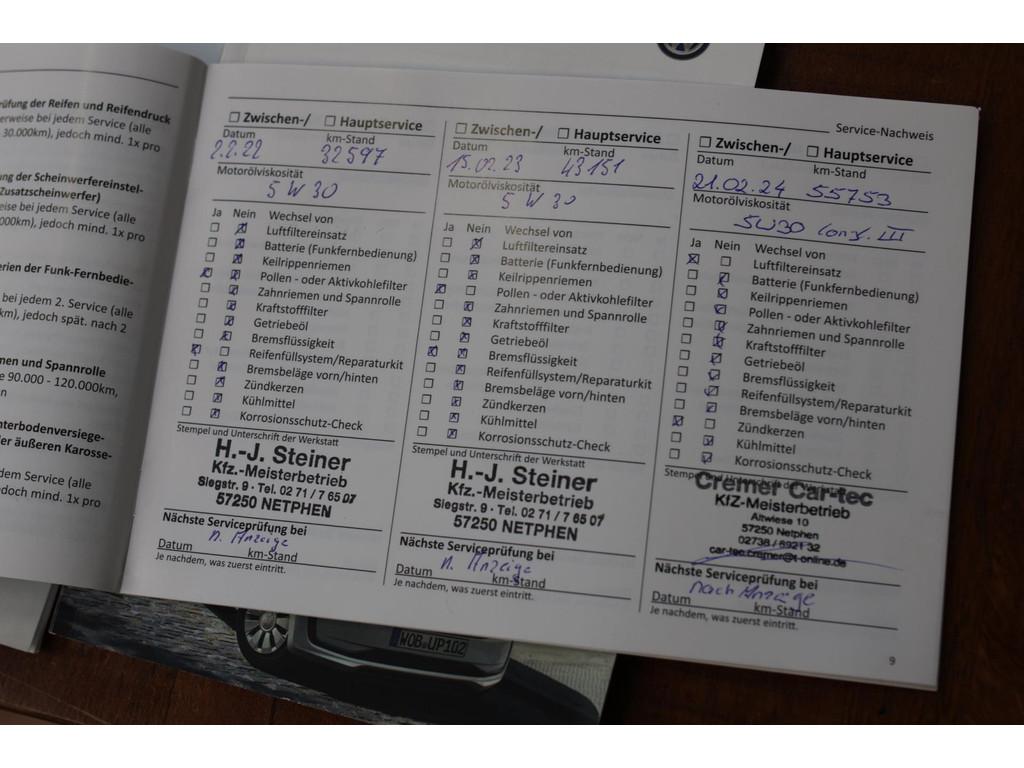 rüfung der Reifen und Reifendruck
erweise bei jedem Service (alle
30.000km), jedoch mind. 1x pro
ng der Scheinwerfereinstel-
Zusatzscheinwerfer)
eise bei jedem Service (alle
000km), jedoch mind. 1x pro
erien der Funk-Fernbedie-
bei jedem 2. Service (alle
km), jedoch spät. nach 2
men und Spannrolle
e 90.000 - 120.000km,
n
nterbodenversiege-
er äußeren Karosse-
dem Service (alle
doch mind. 1x pro
Zwischen-/ Hauptservice
Datum km-Stand
2.2.22 32597
Motorölviskosität
5 W 30
Ja Nein Wechsel von
Luftfiltereinsatz
Batterie (Funkfernbedienung)
Keilrippenriemen
Pollen - oder Aktivkohlefilter
Zahnriemen und Spannrolle
Kraftstofffilter
Getriebeöl
Bremsflüssigkeit
Reifenfüllsystem/Reparaturkit
Bremsbeläge vorn/hinten
Zündkerzen
Kühlmittel
Korrosionsschutz-Check
Stempel und Unterschrift der Werkstatt
H.-J. Steiner
Kfz.-Meisterbetrieb
Siegstr. 9 · Tel. 02 71 / 7 65 07
57250 NETPHEN
Nächste Serviceprüfung bei
n. Anzeige
Datum km-Stand
Je nachdem, was zuerst eintritt.
Zwischen-/ Hauptservice
Datum km-Stand
15.02.23 43151
Motorölviskosität
5 W 30
Ja Nein Wechsel von
Luftfiltereinsatz
Batterie (Funkfernbedienung)
Keilrippenriemen
Pollen - oder Aktivkohlefilter
Zahnriemen und Spannrolle
Kraftstofffilter
Getriebeöl
Bremsflüssigkeit
Reifenfüllsystem/Reparaturkit
Bremsbeläge vorn/hinten
Zündkerzen
Kühlmittel
Korrosionsschutz-Check
Stempel und Unterschrift der Werkstatt
H.-J. Steiner
Kfz.-Meisterbetrieb
Siegstr. 9 · Tel. 02 71 / 7 65 07
57250 NETPHEN
Nächste Serviceprüfung bei
n. Anzeige
Datum km-Stand
Je nachdem, was zuerst eintritt.
Service-Nachweis
Zwischen-/ Hauptservice
Datum km-Stand
21.02.24 55753
Motorölviskosität
5W30 Long. III
Ja Nein Wechsel von
Luftfiltereinsatz
Batterie (Funkfernbedienung)
Keilrippenriemen
Pollen - oder Aktivkohlefilter
Zahnriemen und Spannrolle
Kraftstofffilter
Getriebeöl
Bremsflüssigkeit
Reifenfüllsystem/Reparaturkit
Bremsbeläge vorn/hinten
Zündkerzen
Kühlmittel
Korrosionsschutz-Check
Stempel und Unterschrift der Werkstatt
Cremer Car-tec
KfZ-Meisterbetrieb
Altwiese 10
57250 Netphen
02738 / 6921 32
car-tec.cremer@t-online.de
Nächste Serviceprüfung bei
nach Anzeige
Datum km-Stand
Je nachdem, was zuerst eintritt.
9
WOB UP102